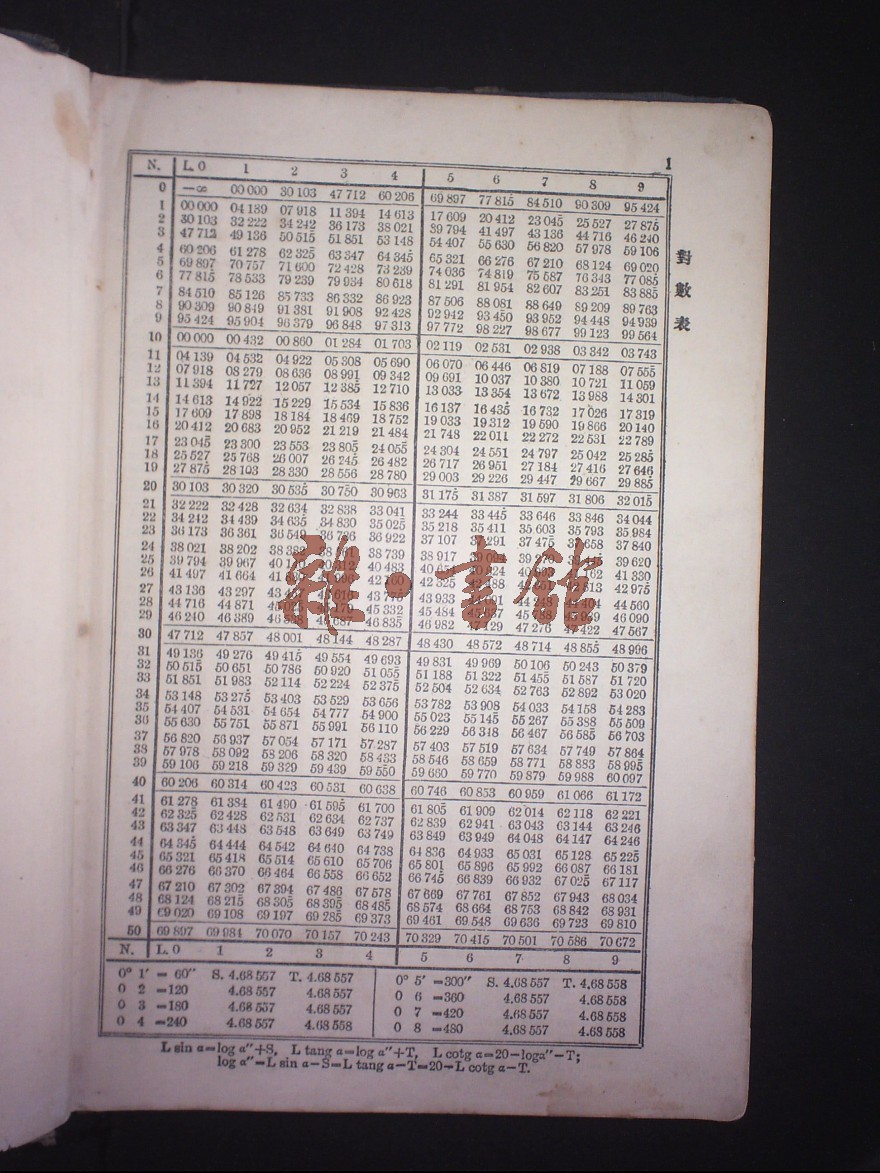 1
對數表
N. L. 0 1 2 3 4 5 6 7 8 9
0 —∞ 00 000 30 103 47 712 60 206 69 897 77 815 84 510 90 309 95 424
1 00 000 04 139 07 918 11 394 14 613 17 609 20 412 23 045 25 527 27 875
2 30 103 32 222 34 242 36 173 38 021 39 794 41 497 43 136 44 716 46 240
3 47 712 49 136 50 515 51 851 53 148 54 407 55 630 56 820 57 978 59 106
4 60 206 61 278 62 325 63 347 64 345 65 321 66 276 67 210 68 124 69 020
5 69 897 70 757 71 600 72 428 73 239 74 036 74 819 75 587 76 343 77 085
6 77 815 78 533 79 239 79 934 80 618 81 291 81 954 82 607 83 251 83 885
7 84 510 85 126 85 733 86 332 86 923 87 506 88 081 88 649 89 209 89 763
8 90 309 90 849 91 381 91 908 92 428 92 942 93 450 93 952 94 448 94 939
9 95 424 95 904 96 379 96 848 97 313 97 772 98 227 98 677 99 123 99 564
10 00 000 00 432 00 860 01 284 01 703 02 119 02 531 02 938 03 342 03 743
11 04 139 04 532 04 922 05 308 05 690 06 070 06 446 06 819 07 188 07 555
12 07 918 08 279 08 636 08 991 09 342 09 691 10 037 10 380 10 721 11 059
13 11 394 11 727 12 057 12 385 12 710 13 033 13 354 13 672 13 988 14 301
14 14 613 14 922 15 229 15 534 15 836 16 137 16 435 16 732 17 026 17 319
15 17 609 17 898 18 184 18 469 18 752 19 033 19 312 19 590 19 866 20 140
16 20 412 20 683 20 952 21 219 21 484 21 748 22 011 22 272 22 531 22 789
17 23 045 23 300 23 553 23 805 24 055 24 304 24 551 24 797 25 042 25 285
18 25 527 25 768 26 007 26 245 26 482 26 717 26 951 27 184 27 416 27 646
19 27 875 28 103 28 330 28 556 28 780 29 003 29 226 29 447 29 667 29 885
20 30 103 30 320 30 535 30 750 30 963 31 175 31 387 31 597 31 806 32 015
21 32 222 32 428 32 634 32 838 33 041 33 244 33 445 33 646 33 846 34 044
22 34 242 34 439 34 635 34 830 35 025 35 218 35 411 35 603 35 793 35 984
23 36 173 36 361 36 549 36 736 36 922 37 107 37 291 37 475 37 658 37 840
24 38 021 38 202 38 739 38 917 39 620
25 39 794 39 967 40 483 41 330
26 41 497 41 664 42 325 42 975
27 43 136 43 297 43 933 44 560
28 44 716 44 871 45 332 45 484 46 090
29 46 240 46 389 46 687 46 835 46 982 47 129 47 276 47 422 47 567
30 47 712 47 857 48 001 48 144 48 287 48 430 48 572 48 714 48 855 48 996
31 49 136 49 276 49 415 49 554 49 693 49 831 49 969 50 106 50 243 50 379
32 50 515 50 651 50 786 50 920 51 055 51 188 51 322 51 455 51 587 51 720
33 51 851 51 983 52 114 52 224 52 375 52 504 52 634 52 763 52 892 53 020
34 53 148 53 275 53 403 53 529 53 656 53 782 53 908 54 033 54 158 54 283
35 54 407 54 531 54 654 54 777 54 900 55 023 55 145 55 267 55 388 55 509
36 55 630 55 751 55 871 55 991 56 110 56 229 56 348 56 467 56 585 56 703
37 56 820 56 937 57 054 57 171 57 287 57 403 57 519 57 634 57 749 57 864
38 57 978 58 092 58 206 58 320 58 433 58 546 58 659 58 771 58 883 58 995
39 59 106 59 218 59 329 59 439 59 550 59 660 59 770 59 879 59 988 60 097
40 60 206 60 314 60 423 60 531 60 638 60 746 60 853 60 959 61 066 61 172
41 61 278 61 384 61 490 61 595 61 700 61 805 61 909 62 014 62 118 62 221
42 62 325 62 428 62 531 62 634 62 737 62 839 62 941 63 043 63 144 63 246
43 63 347 63 448 63 548 63 649 63 749 63 849 63 949 64 048 64 147 64 246
44 64 345 64 444 64 542 64 640 64 738 64 836 64 933 65 031 65 128 65 225
45 65 321 65 418 65 514 65 610 65 706 65 801 65 896 65 992 66 087 66 181
46 66 276 66 370 66 464 66 558 66 652 66 745 66 839 66 932 67 025 67 117
47 67 210 67 302 67 394 67 486 67 578 67 669 67 761 67 852 67 943 68 034
48 68 124 68 215 68 305 68 395 68 485 68 574 68 664 68 753 68 842 68 931
49 69 020 69 108 69 197 69 285 69 373 69 461 69 548 69 636 69 723 69 810
50 69 897 69 984 70 070 70 157 70 243 70 329 70 415 70 501 70 586 70 672
N. L. 0 1 2 3 4 5 6 7 8 9
0° 1′ = 60″ S. 4.68 557 T. 4.68 557 0° 5′ =300″ S. 4.68 557 T. 4.68 558
0 2 =120 4.68 557 4.68 557 0 6 =360 4.68 557 4.68 558
0 3 =180 4.68 557 4.68 557 0 7 =420 4.68 557 4.68 558
0 4 =240 4.68 557 4.68 558 0 8 =480 4.68 557 4.68 558
L sin α=log α″+S, L tang α=log α″+T, L cotg α=20−logα″−T;
log α″=L sin α−S=L tang α−T=20−L cotg α−T.
雜·書館